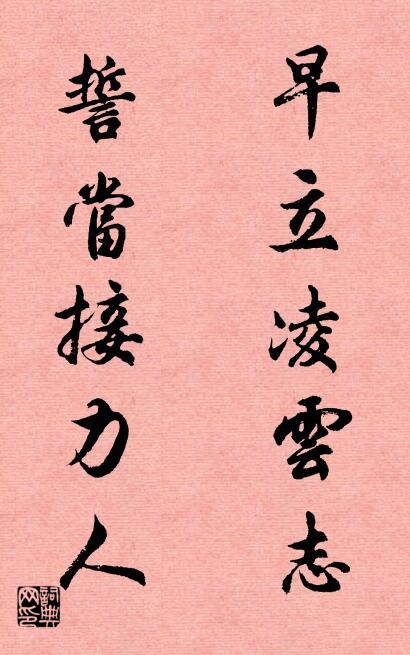 早立凌雲志
誓當接力人
詞典網印